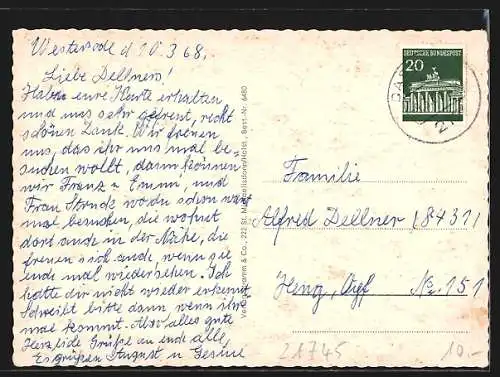 Westerode d 10.3.68.
Liebe Dellners!
Haben eure Karte erhalten
und uns sehr gefreut, recht
schönen Dank. Wir freuen
uns, das ihr uns mal be-
suchen wollt, dann können
wir Franz u Emmi, und
Frau wo du schon warst
mal besuchen, die wohnt
dort auch in der Nähe, die
freuen sich auch, wenn sie
euch mal wiedersehen. Ich
hätte dir nicht wieder erkennt
Schreibt bitte dann wenn ihr
mal kommt. Also alles gute
Herzliche Grüße an euch alle,
Es grüßen August u Gesine
Familie
Alfred Dellner (8431)
No. 151
DEUTSCHE BUNDESPOST
20
21745
10.-
& Co., 222 St. Best.-Nr. 6480